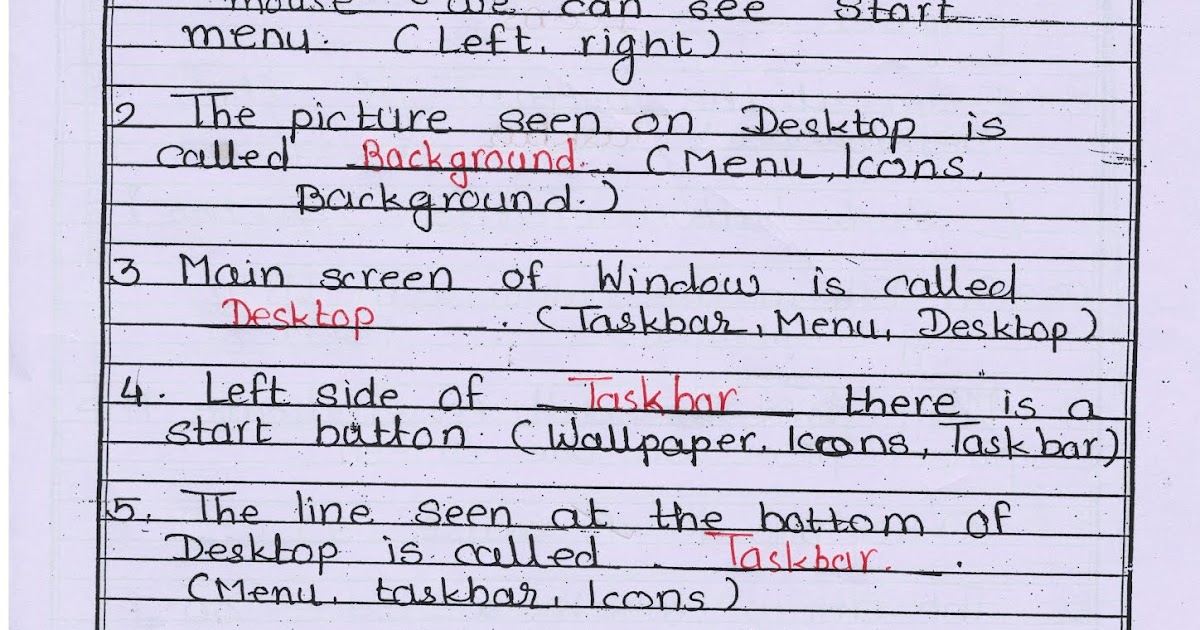 mouse we can see start
menu. (Left, right)
2 The picture seen on Desktop is
called Background. (Menu, Icons,
Background.)
3 Main screen of Window is called
Desktop. (Taskbar, Menu, Desktop)
4. Left side of Taskbar there is a
start button. (Wallpaper, Icons, Taskbar)
5. The line seen at the bottom of
Desktop is called Taskbar.
(Menu, taskbar, Icons)